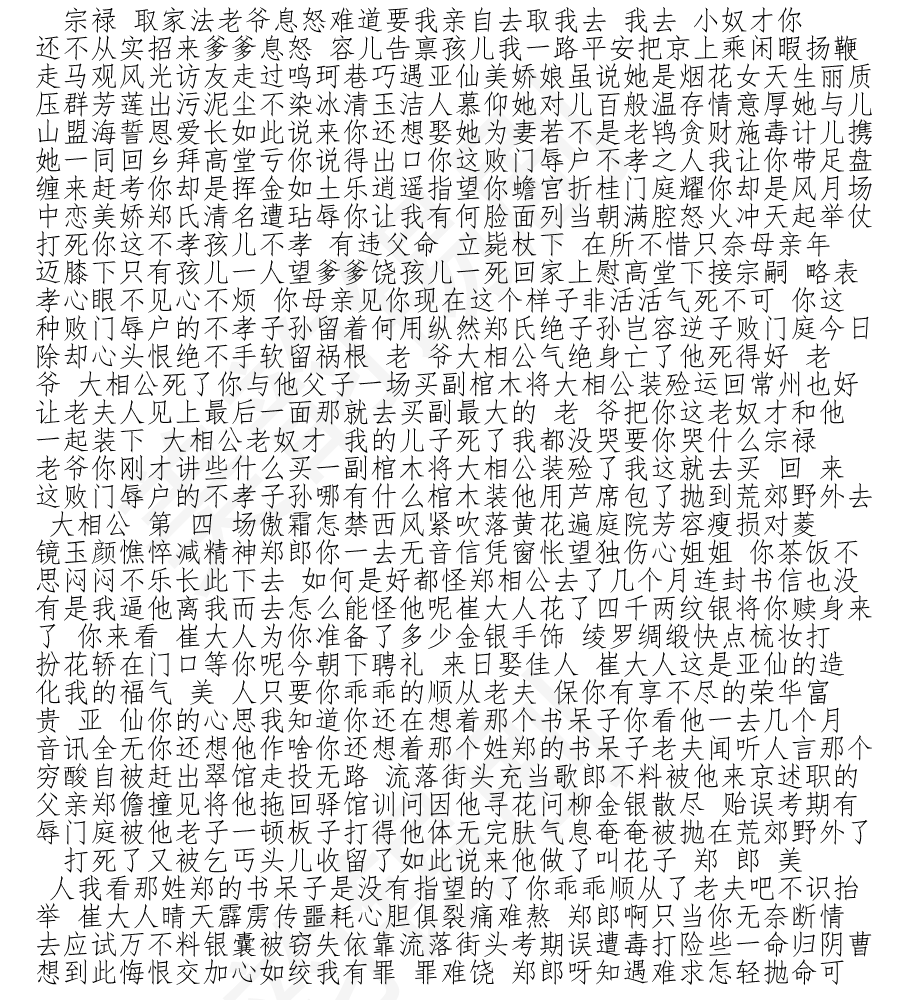 宗禄 取家法老爷息怒难道要我亲自去取我去 我去 小奴才你
还不从实招来爹爹息怒 容儿告禀孩儿我一路平安把京上乘闲暇扬鞭
走马观风光访友走过鸣珂巷巧遇亚仙美娇娘虽说她是烟花女天生丽质
压群芳莲出污泥尘不染冰清玉洁人慕仰她对儿百般温存情意厚她与儿
山盟海誓恩爱长如此说来你还想娶她为妻若不是老鸨贪财施毒计儿携
她一同回乡拜高堂亏你说得出口你这败门辱户不孝之人我让你带足盘
缠来赶考你却是挥金如土乐逍遥指望你蟾宫折桂门庭耀你却是风月场
中恋美娇郑氏清名遭玷辱你让我有何脸面列当朝满腔怒火冲天起举仗
打死你这不孝孩儿不孝 有违父命 立毙杖下 在所不惜只奈母亲年
迈膝下只有孩儿一人望爹爹饶孩儿一死回家上慰高堂下接宗嗣 略表
孝心眼不见心不烦 你母亲见你现在这个样子非活活气死不可 你这
种败门辱户的不孝子孙留着何用纵然郑氏绝子孙岂容逆子败门庭今日
除却心头恨绝不手软留祸根 老 爷大相公气绝身亡了他死得好 老
爷 大相公死了你与他父子一场买副棺木将大相公装殓运回常州也好
让老夫人见上最后一面那就去买副最大的 老 爷把你这老奴才和他
一起装下 大相公老奴才 我的儿子死了我都没哭要你哭什么宗禄
老爷你刚才讲些什么买一副棺木将大相公装殓了我这就去买 回 来
这败门辱户的不孝子孙哪有什么棺木装他用芦席包了抛到荒郊野外去
大相公 第 四 场傲霜怎禁西风紧吹落黄花遍庭院芳容瘦损对菱
镜玉颜憔悴减精神郑郎你一去无音信凭窗怅望独伤心姐姐 你茶饭不
思闷闷不乐长此下去 如何是好都怪郑相公去了几个月连封书信也没
有是我逼他离我而去怎么能怪他呢崔大人花了四千两纹银将你赎身来
了 你来看 崔大人为你准备了多少金银手饰 绫罗绸缎快点梳妆打
扮花轿在门口等你呢今朝下聘礼 来日娶佳人 崔大人这是亚仙的造
化我的福气 美 人只要你乖乖的顺从老夫 保你有享不尽的荣华富
贵 亚 仙你的心思我知道你还在想着那个书呆子你看他一去几个月
音讯全无你还想他作啥你还想着那个姓郑的书呆子老夫闻听人言那个
穷酸自被赶出翠馆走投无路 流落街头充当歌郎不料被他来京述职的
父亲郑儋撞见将他拖回驿馆训问因他寻花问柳金银散尽 贻误考期有
辱门庭被他老子一顿板子打得他体无完肤气息奄奄被抛在荒郊野外了
打死了又被乞丐头儿收留了如此说来他做了叫花子 郑 郎 美
人我看那姓郑的书呆子是没有指望的了你乖乖顺从了老夫吧不识抬
举 崔大人晴天霹雳传噩耗心胆俱裂痛难熬 郑郎啊只当你无奈断情
去应试万不料银囊被窃失依靠流落街头考期误遭毒打险些一命归阴曹
想到此悔恨交加心如绞我有罪 罪难饶 郑郎呀知遇难求怎轻抛命可